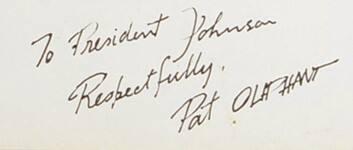 To President Johnson
Respectfully.
Pat OLIPHANT